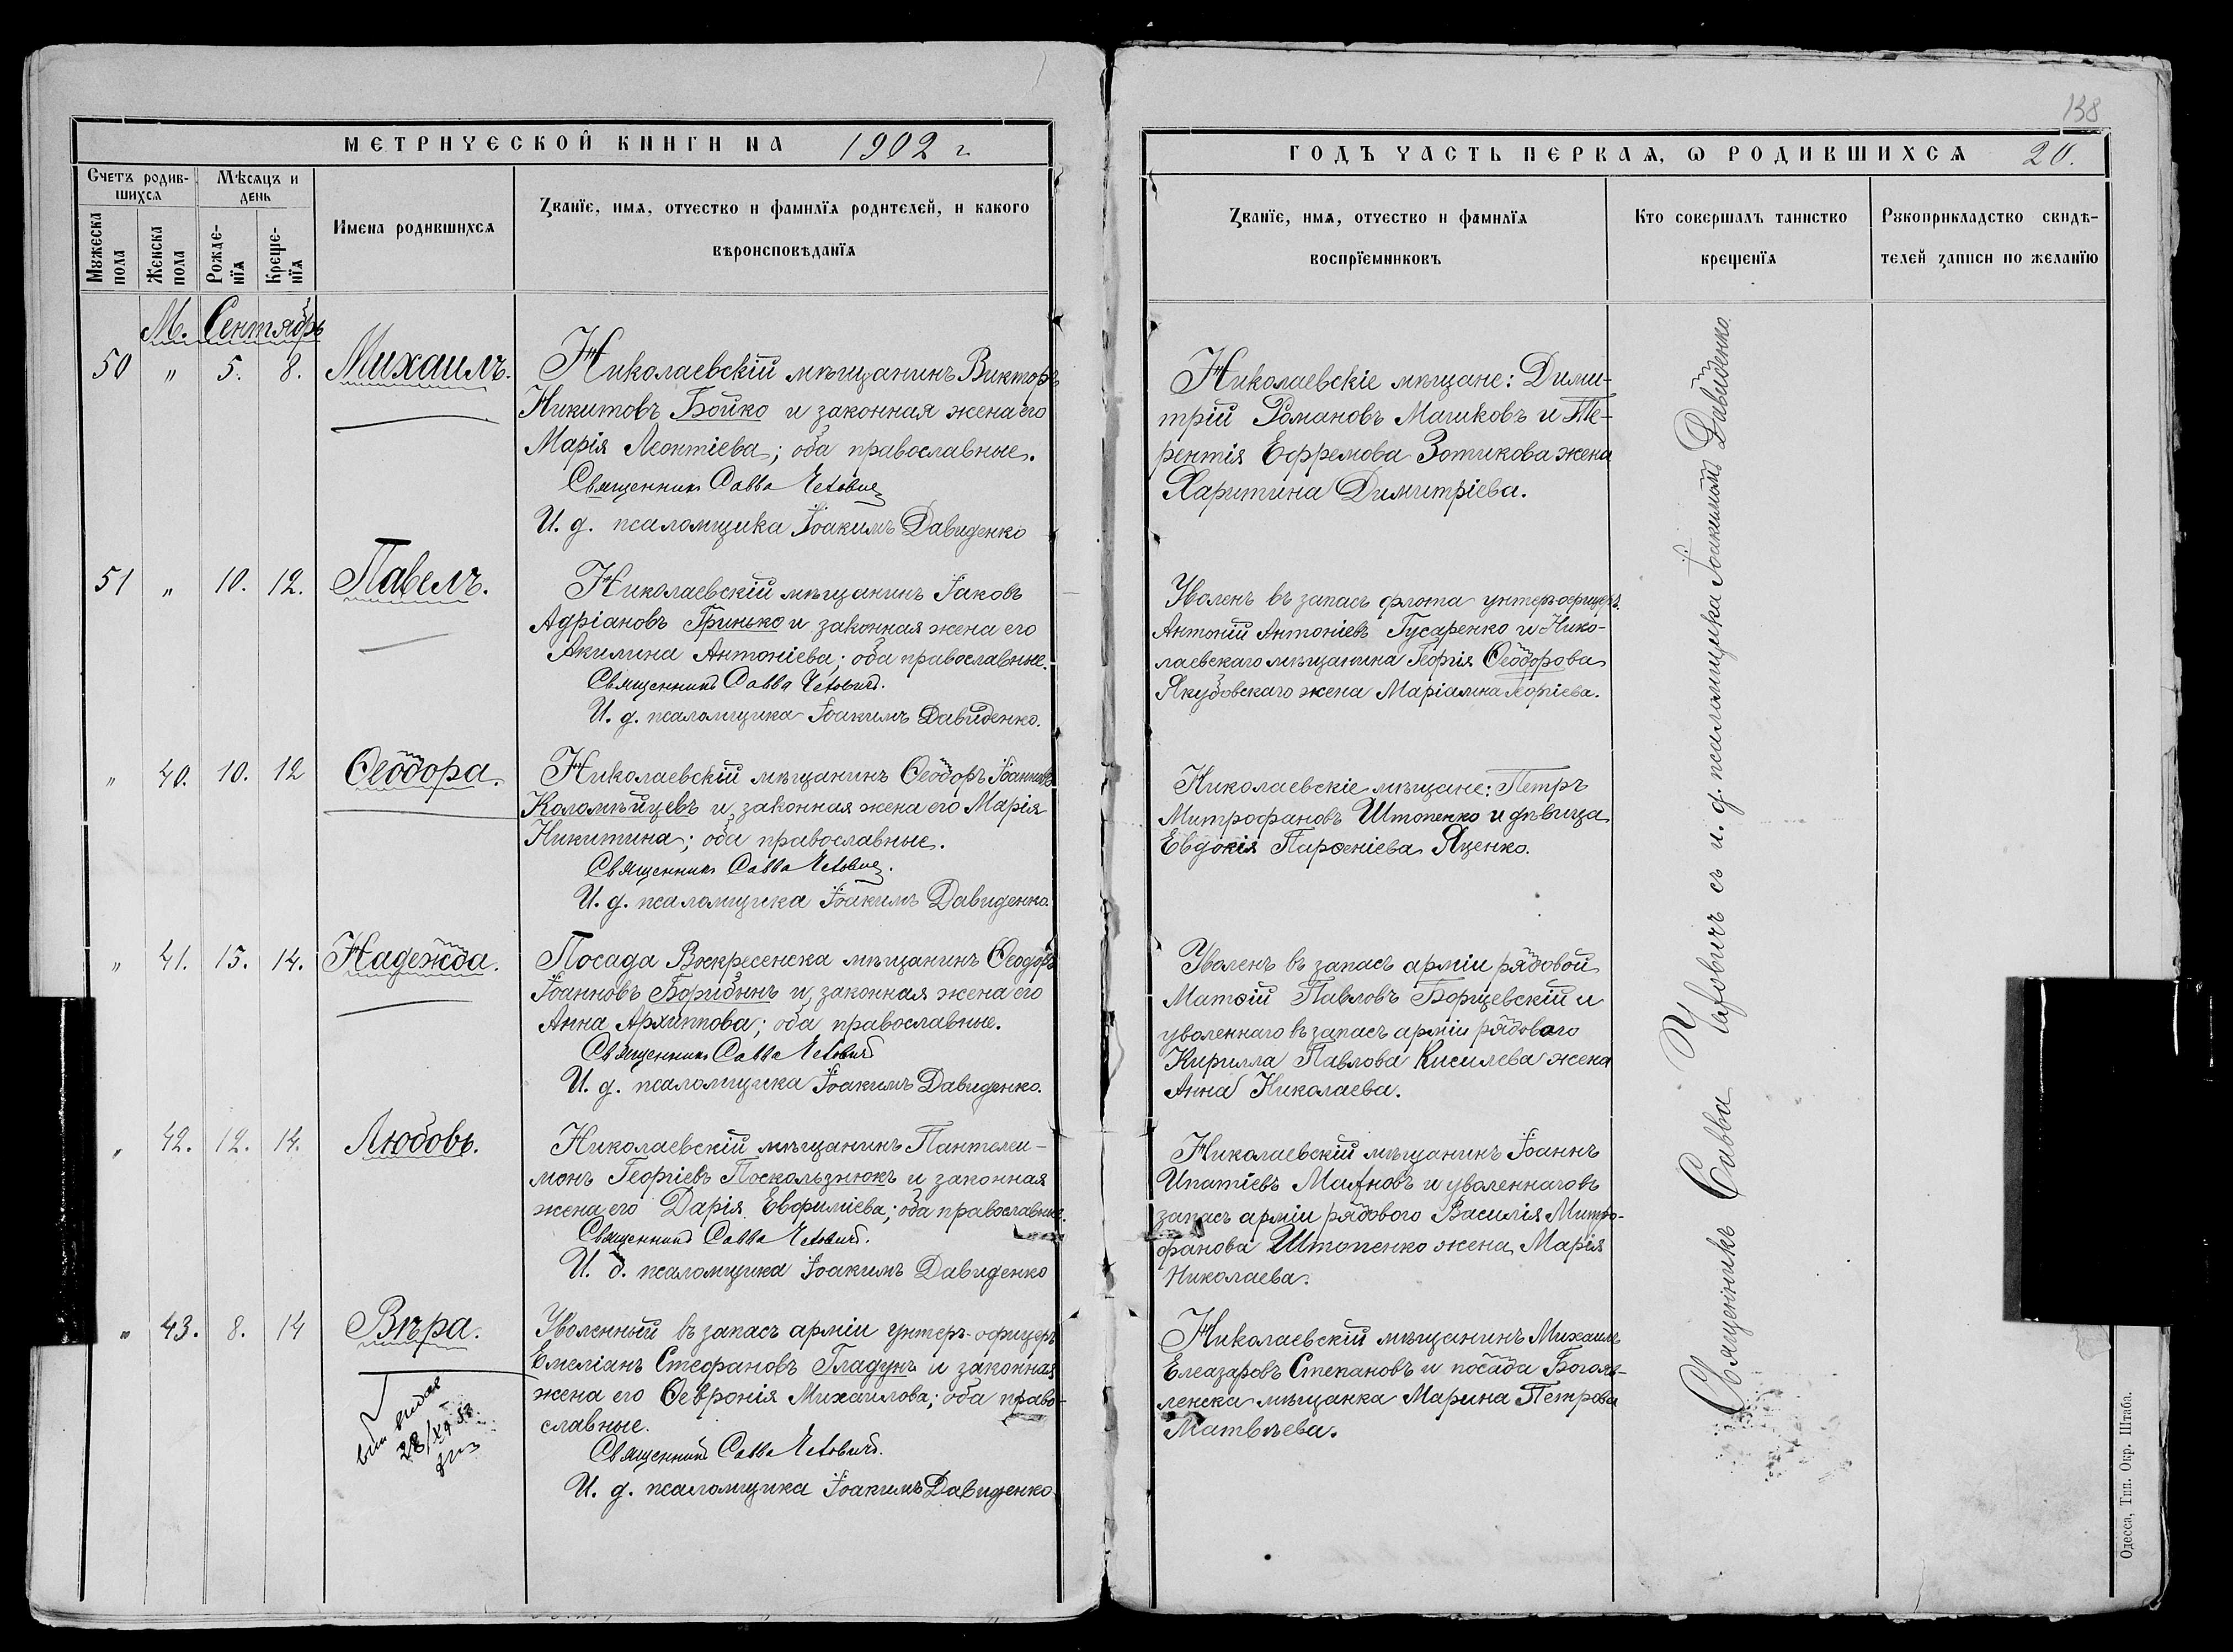 МЕТРИЧЕСКОЙ КНИГИ НА 1902 г.
Счетъ родив-
шихся
Мѣсяцъ и
день
Мужеска
пола
Женска
пола
Рожде-
нїя
Креще-
нїя
Имена родившихся
Званїе, имя, отчество и фамилїя родителей, и какого
вѣроисповѣданїя
М. Сентябрь
50 " 5. 8. Михаилъ.
Николаевскій мѣщанинъ Викторъ
Никитовъ Бойко и законная жена его
Марія Леонтіева; оба православные.
Священникъ Савва
И. д. псаломщика Іоакимъ Давиденко
51 " 10. 12. Павелъ.
Николаевскій мѣщанинъ Іаковъ
Адріановъ Гринько и законная жена его
Акилина Антоніева; оба православные.
Священникъ Савва
И. д. псаломщика Іоакимъ Давиденко.
" 40. 10. 12 Ѳеодора.
Николаевскій мѣщанинъ Ѳеодоръ Іоанновъ
Коломѣйцевъ и законная жена его Марія
Никитина; оба православные.
Священникъ Савва
И. д. псаломщика Іоакимъ Давиденко.
" 41. 13. 14. Надежда.
Посада Воскресенска мѣщанинъ Ѳеодоръ
Іоанновъ Борибынъ и законная жена его
Анна Архиппова; оба православные.
Священникъ Савва
И. д. псаломщика Іоакимъ Давиденко.
" 42. 12. 14. Любовь.
Николаевскій мѣщанинъ Пантелеи-
монъ Георгіевъ Поскользнюкъ и законная
жена его Дарія Евфиміева; оба православные.
Священникъ Савва
И. д. псаломщика Іоакимъ Давиденко
" 43. 8. 14 Вѣра.
Уволенный въ запасъ арміи унтеръ-офицеръ
Емеліанъ Стефановъ Гладунъ и законная
жена его Ѳевронія Михаилова; оба право-
славные.
Священникъ Савва
И. д. псаломщика Іоакимъ Давиденко.
138
ГОДЪ ЧАСТЬ ПЕРВАЯ, Ѡ РОДИВШИХСЯ 20.
Званїе, имя, отчество и фамилїя
воспрїемниковъ
Кто совершалъ таинство
крещенїя
Рукоприкладство свидѣ-
телей записи по желанїю
Николаевскіе мѣщане: Дими-
трій Романовъ Машковъ и Те-
рентія Ефремова Зотикова жена
Харитина Димитріева.
Уволенъ въ запасъ флота унтеръ-офицеръ
Антоній Антоніевъ Гусаренко и Нико-
лаевскаго мѣщанина Георгія Ѳеодорова
Якубовскаго жена Маріамна Георгіева.
Николаевскіе мѣщане: Петръ
Митрофановъ Штопенко и дѣвица
Евдокія Парѳеніева Яценко.
Уволенъ въ запасъ арміи рядовой
Матѳій Павловъ Борщевскій и
уволеннаго въ запасъ арміи рядового
Кирилла Павлова Кисилева жена
Анна Николаева.
Николаевскій мѣщанинъ Іоаннъ
Ипатіевъ и уволеннаго въ
запасъ арміи рядового Василія Митро-
фанова Штопенко жена Марія
Николаева.
Николаевскій мѣщанинъ Михаилъ
Елеазаровъ Степановъ и посада Богояв-
ленска мѣщанка Марина Петрова
Матвѣева.
Священникъ Савва съ и. д. псаломщика Іоакимомъ Давиденко.
Одесса, Тип. Окр. Штаба.